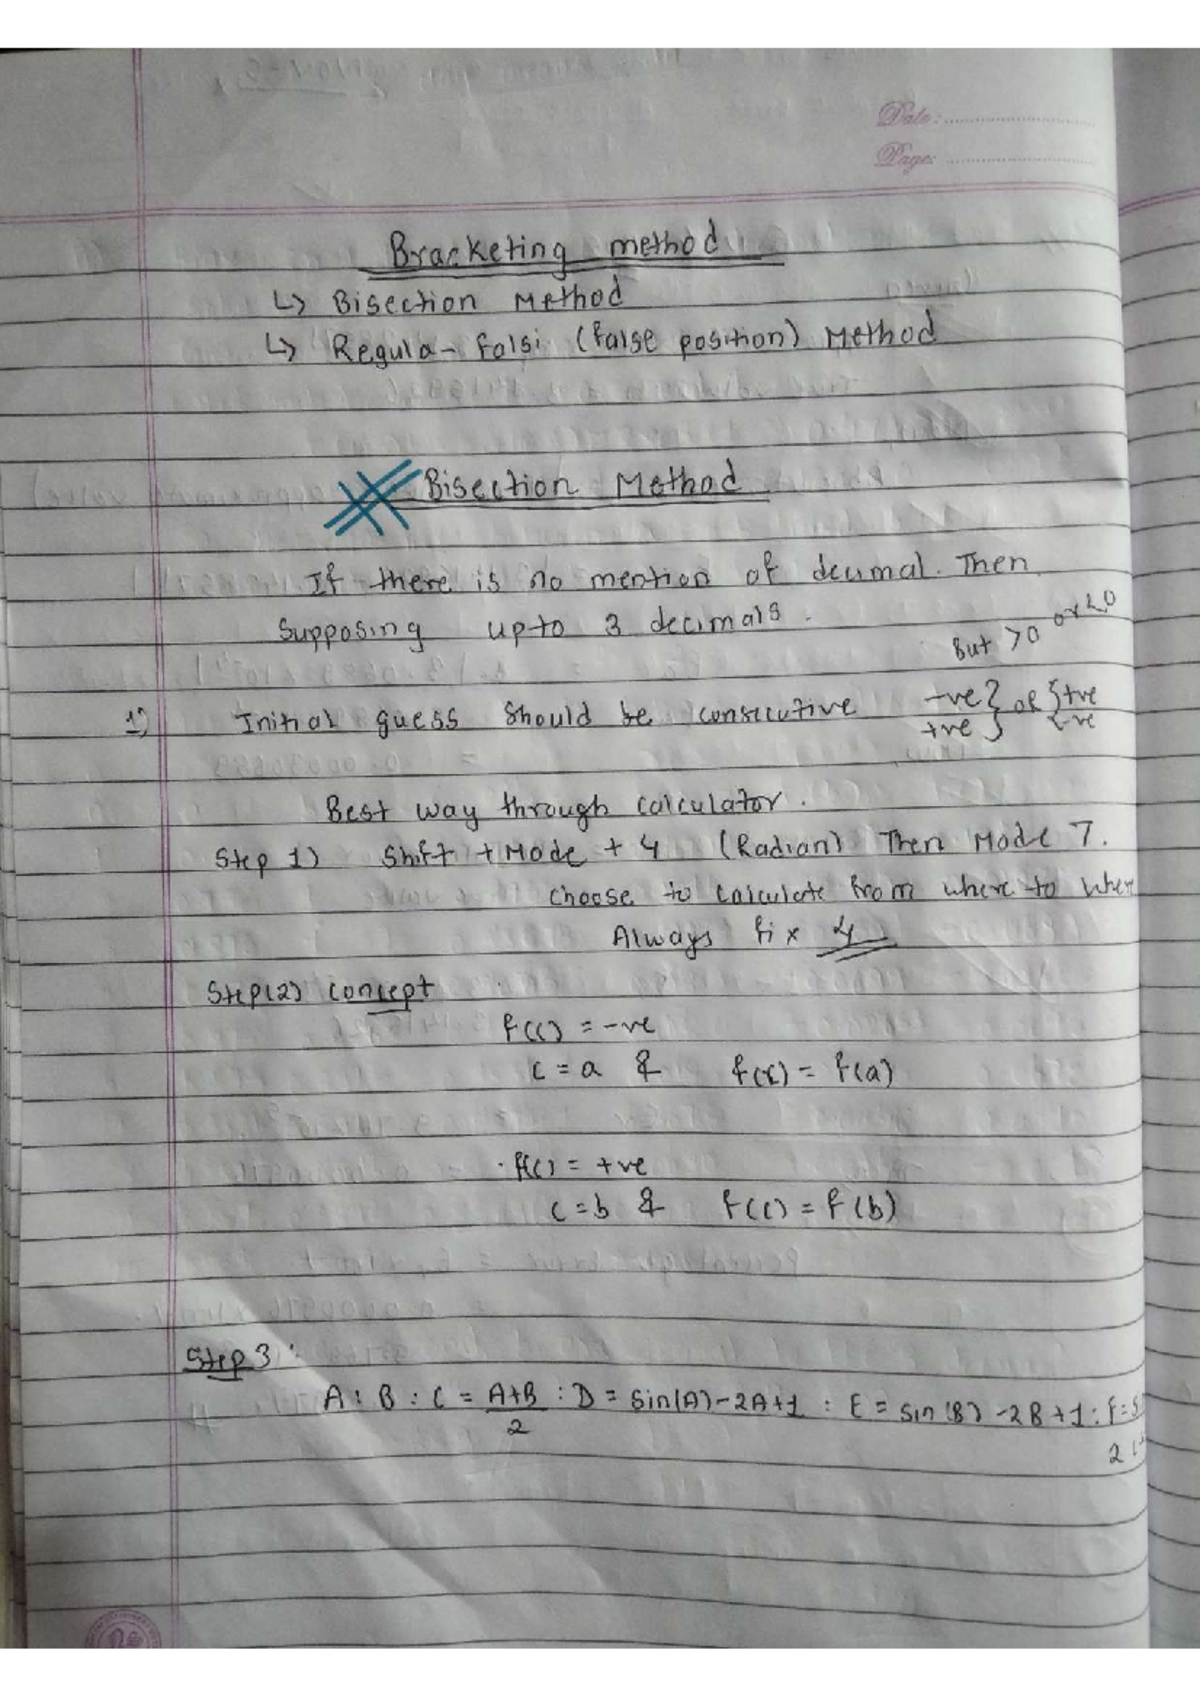 Date:
Page:
Bracketing method
↳ Bisection Method
↳ Regula-Falsi (false position) Method
Bisection Method
If there is no mention of decimal. Then
Supposing upto 3 decimals.
But >0 or <0
1) Initial guess Should be consecutive -ve } OR { +ve
+ve } { -ve
Best way through calculator.
Step 1) Shift + Mode + 4 (Radian) Then Mode 7.
choose to calculate from where to wher
Always fix 4
Step(2) Concept
f(c) = -ve
c = a & f(c) = f(a)
. f(c) = +ve
c = b & f(c) = f(b)
Step 3 :
A : B : C = A+B/2 : D = Sin(A)-2A+1 : E = Sin(B)-2B+1 : F=S